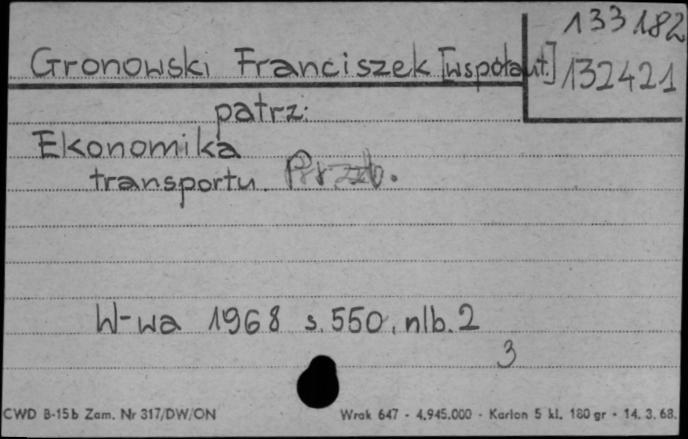 133182
Gronowski Franciszek [współaut.] 132421
patrz:
Ekonomika
transportu.
W-wa 1968 s. 550, nlb. 2
3
CWD B-15b Zam. Nr 317/DW/ON Wrak 647 - 4.945.000 - Karton 5 kl. 180 gr - 14. 3. 68.